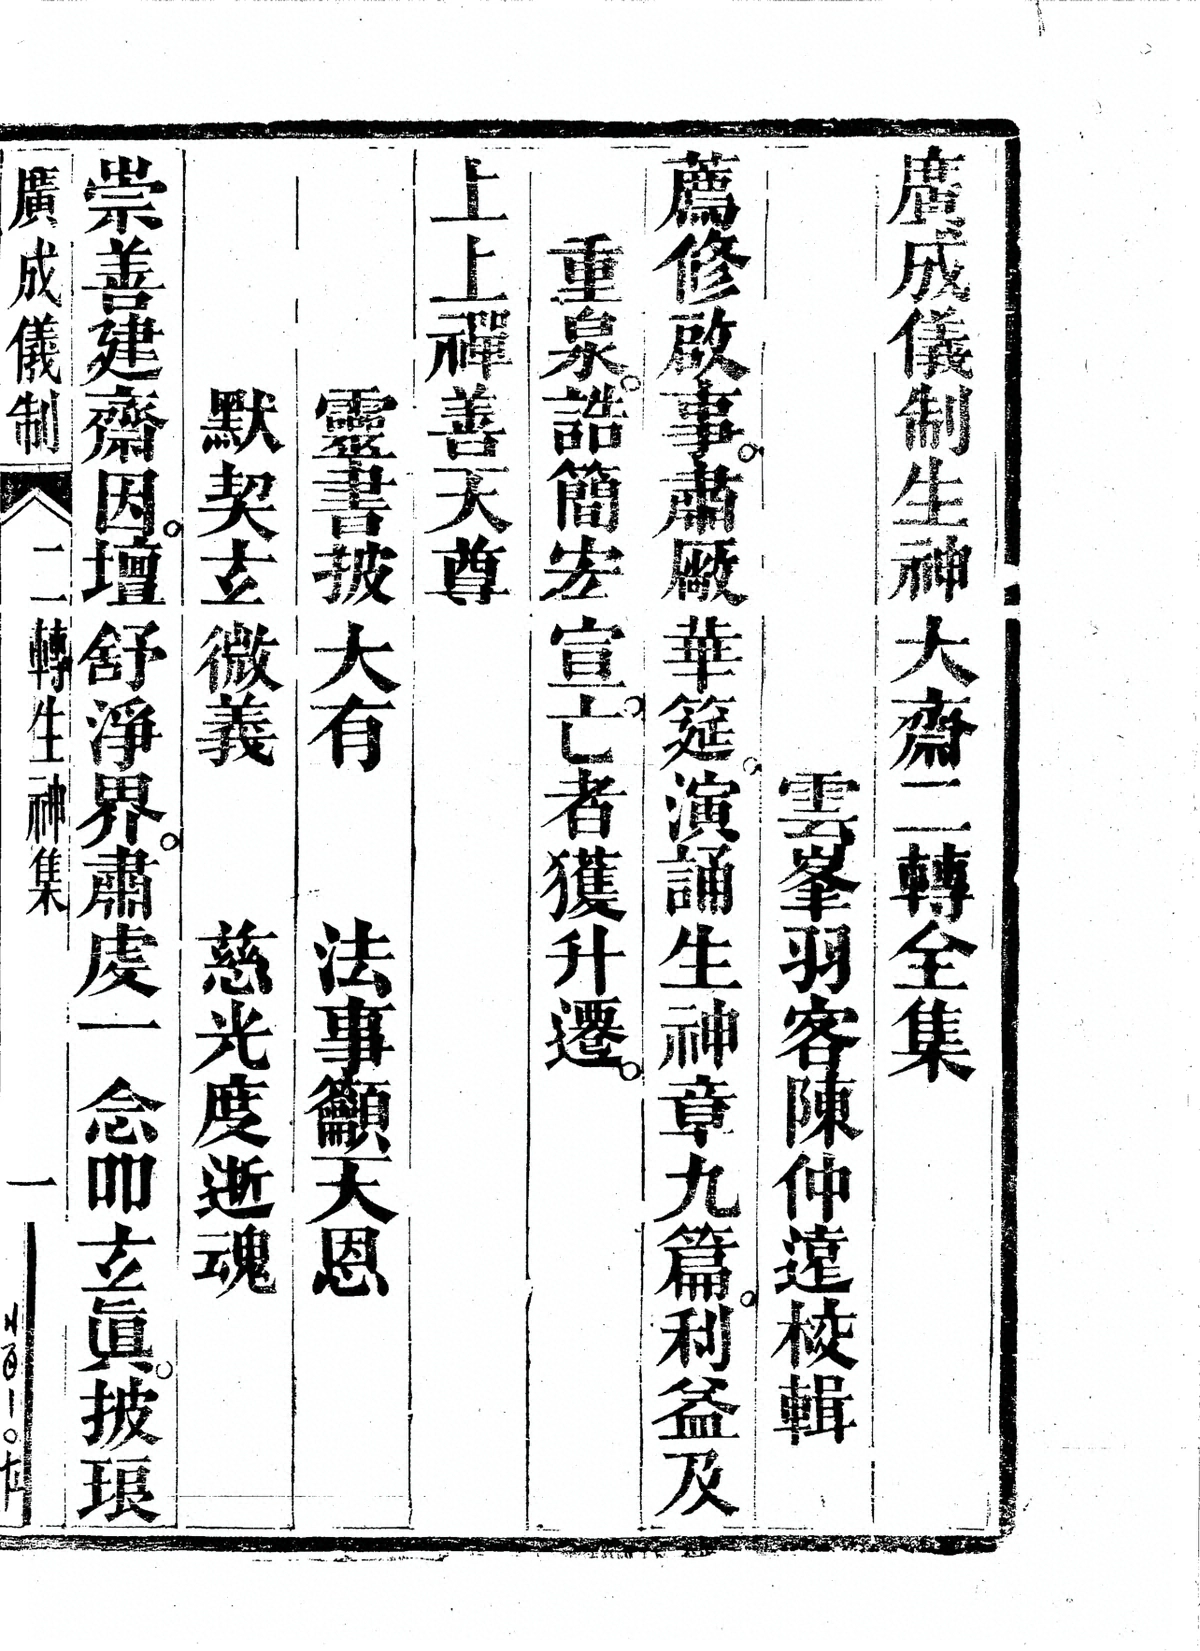 廣成儀制生神大齋二轉全集
雲峯羽客陳仲遠校輯
薦修啟事。肅厰華筵。演誦生神章九篇。利益及
重泉。誥簡宏宣。亡者獲升遷。
上上禪善天尊
靈書披大有　法事籲天恩
默契玄微義　慈光度逝魂
崇善建齋因。壇舒淨界。肅虔一念叩玄眞。披琅
廣成儀制　二轉生神集　一